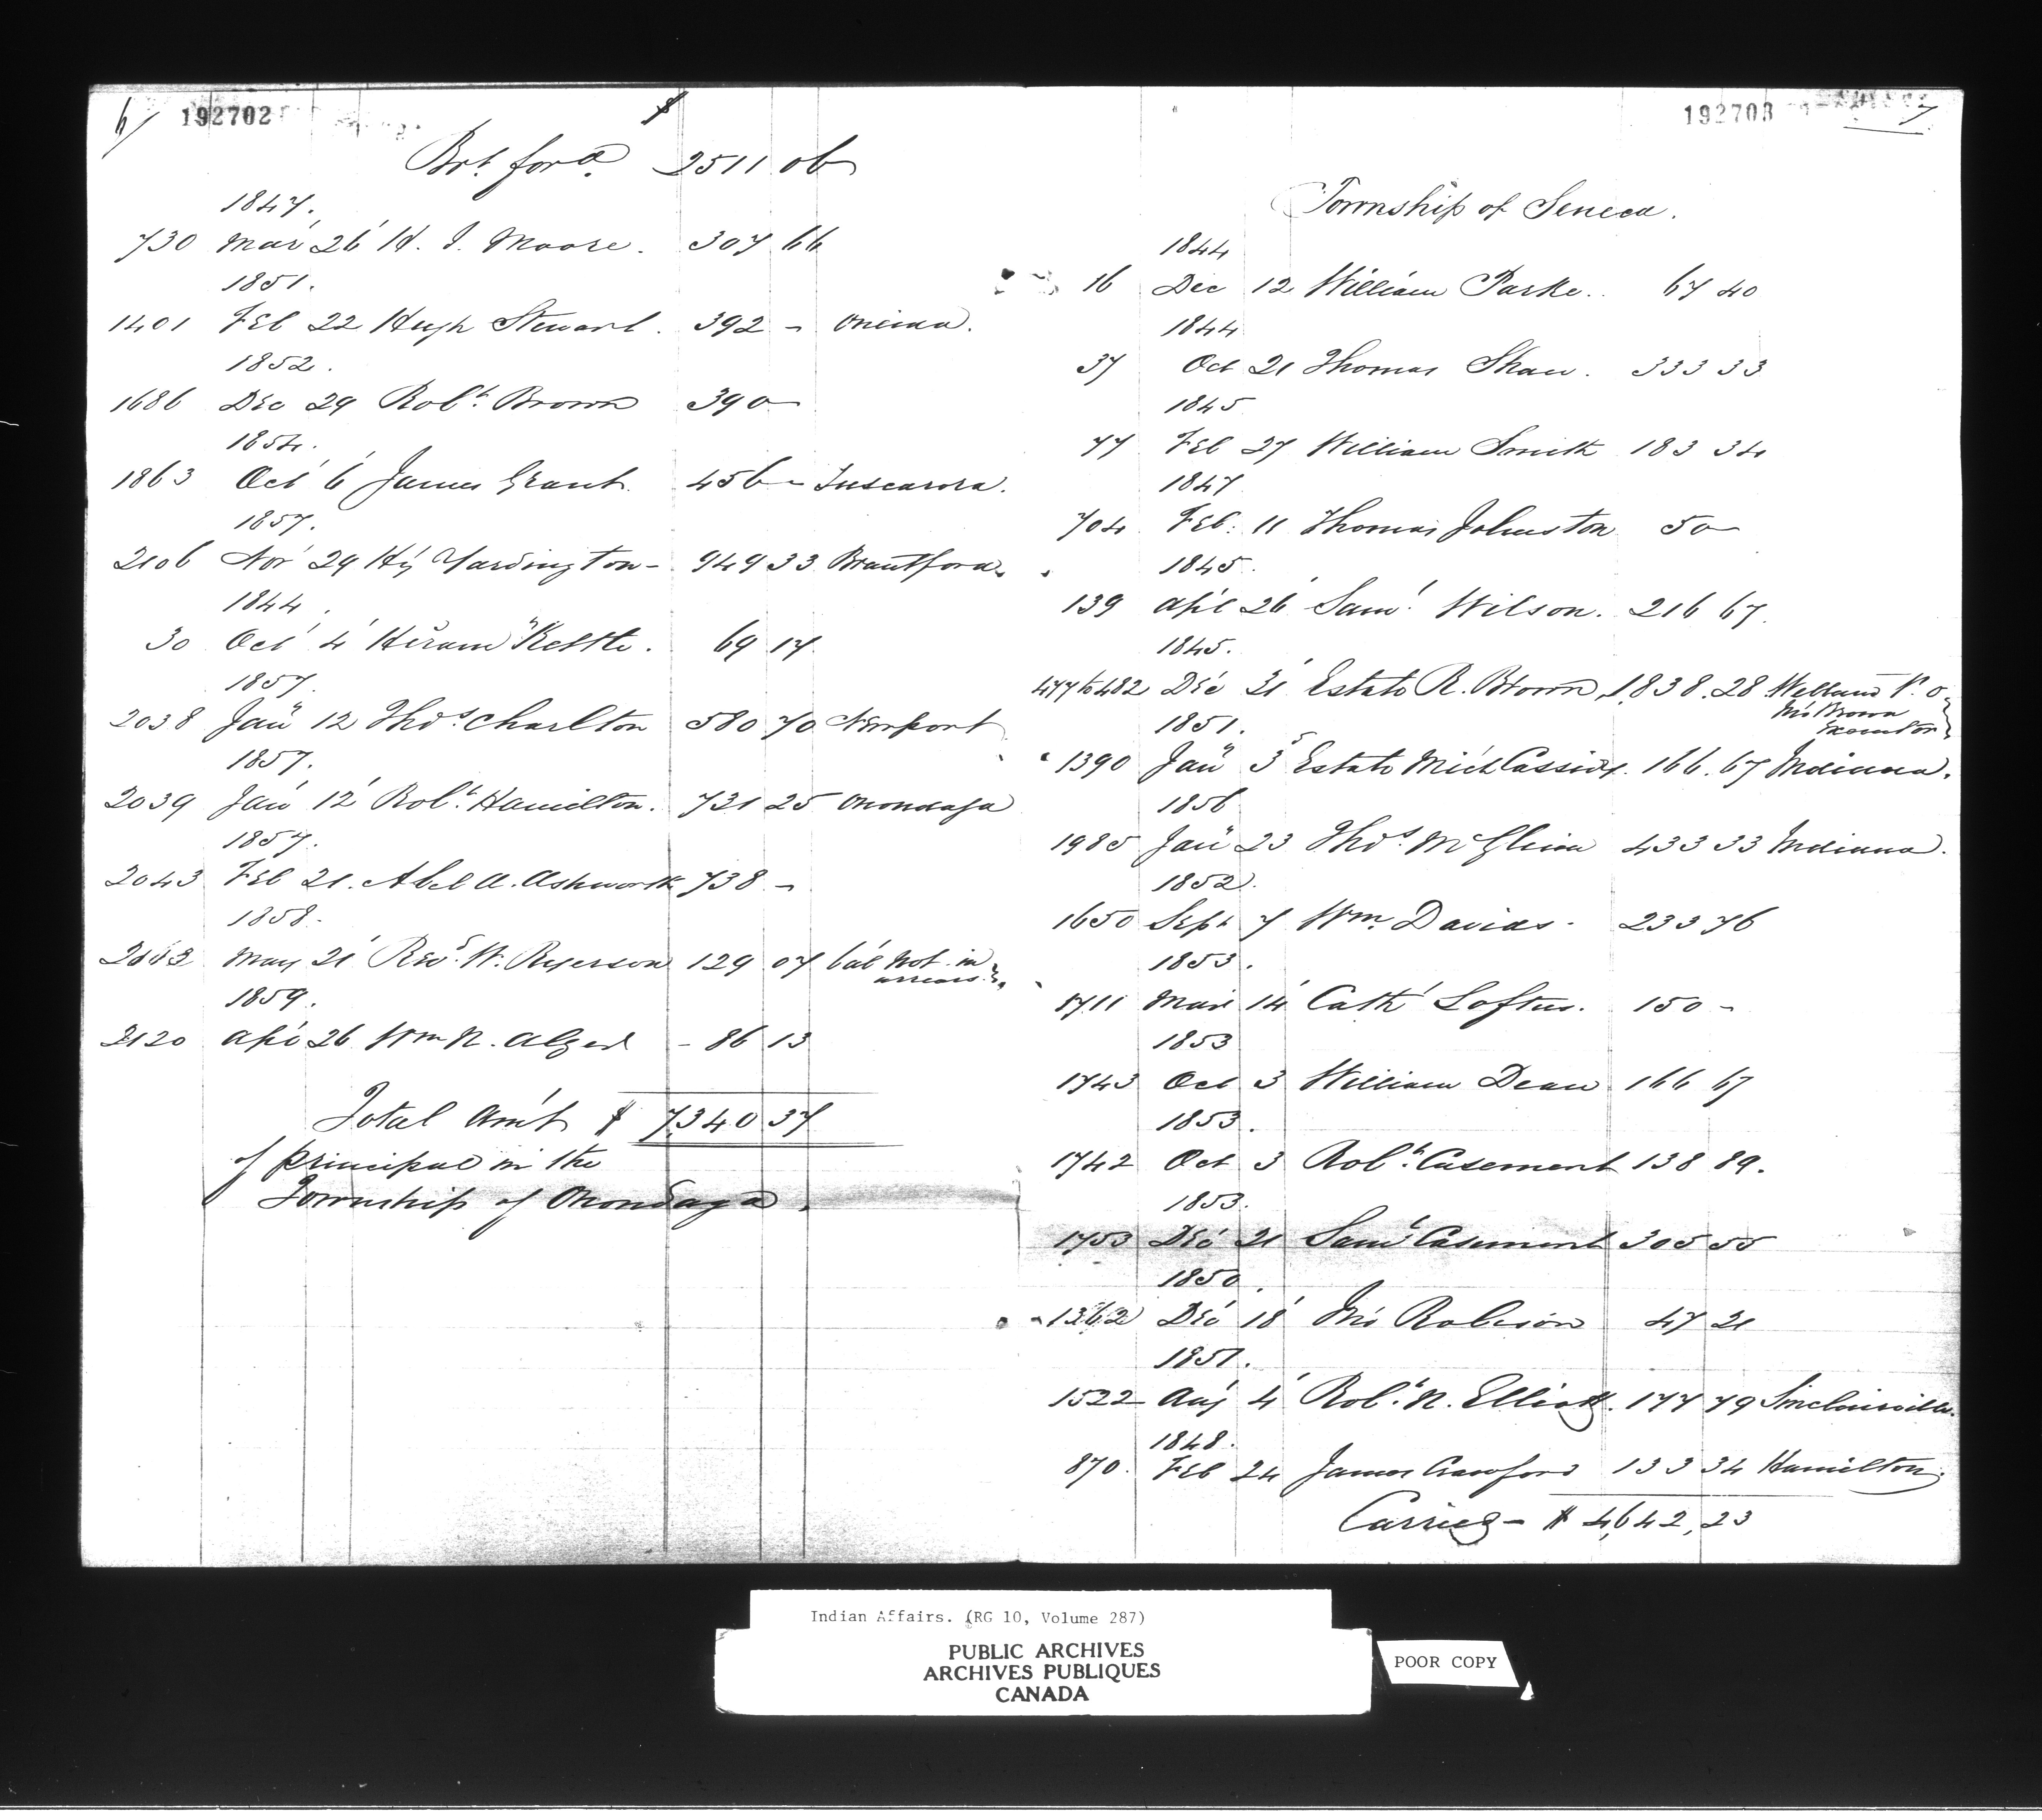 6/ 192702
$
Brt. ford. 2511 06
1847.
730 Mar 26 H. I. Moore. 307 66
1851.
1401 Feb 22 Hugh Stewart. 392 - Oneida.
1852.
1686 Dec 29 Robt. Brown 390 -
1854.
1863 Oct 6 James Grant. 456 - Tuscarora.
1857.
2106 Nov 29 Hy Yardington - 949 33 Brantford.
1844.
30 Oct 4 Hiram Kettle. 69 17
1857.
2038 Jany 12 Thos. Charlton 580 70 Newport
1857.
2039 Jany 12 Robt. Hamilton. 731 25 Onondaga
1857.
2043 Feb 21. Abel A. Ashworth 738 -
1858.
May 21 Revd. W. Ryerson 129 07 bal not in
arrears.
1859.
2120 Apl 26 Wm N. Alger - 86 13
Total Amt $ 7,340 37
of principal in the
Township of Onondaga.
192703 7
Township of Seneca.
1844
16 Dec 12 William Parke.. 67 40
1844
37 Oct 21 Thomas Shaw. 333 33
1845
77 Feb 27 William Smith 183 34
1847
704 Feb: 11 Thomas Johnston 50 -
1845.
139 Apl 26 Saml. Wilson. 216 67.
1845.
477 to 482 Dec 31 Estate R. Brown, 1,838.28 Welland P.O.
Jno Brown
Executor
1851.
1390 Jany 3 Estate Mich Cassidy. 166.67 Indiana.
1856
1985 Jany 23 Thos. McGlinn 433 33 Indiana.
1852.
1650 Sept 7 Wm. Davids. 233 76
1853.
1711 Mar 14 Cath Loftus. 150 -
1853
1743 Oct 3 William Dean 166 67
1853.
1742 Oct 3 Robt. Casement 138 89.
1853.
1753 Dec 21 Saml Casement 305 55
1850.
1362 Dec 18 Jno Robison 47 21
1851.
1522 Aug 4 Robt. N. Elliott. 177 79 Sinclairville.
1848.
870. Feb 24 James Crawford 133 34 Hamilton.
Carried - $ 4,642,23
Indian Affairs. (RG 10, Volume 287)
PUBLIC ARCHIVES
ARCHIVES PUBLIQUES
CANADA
POOR COPY